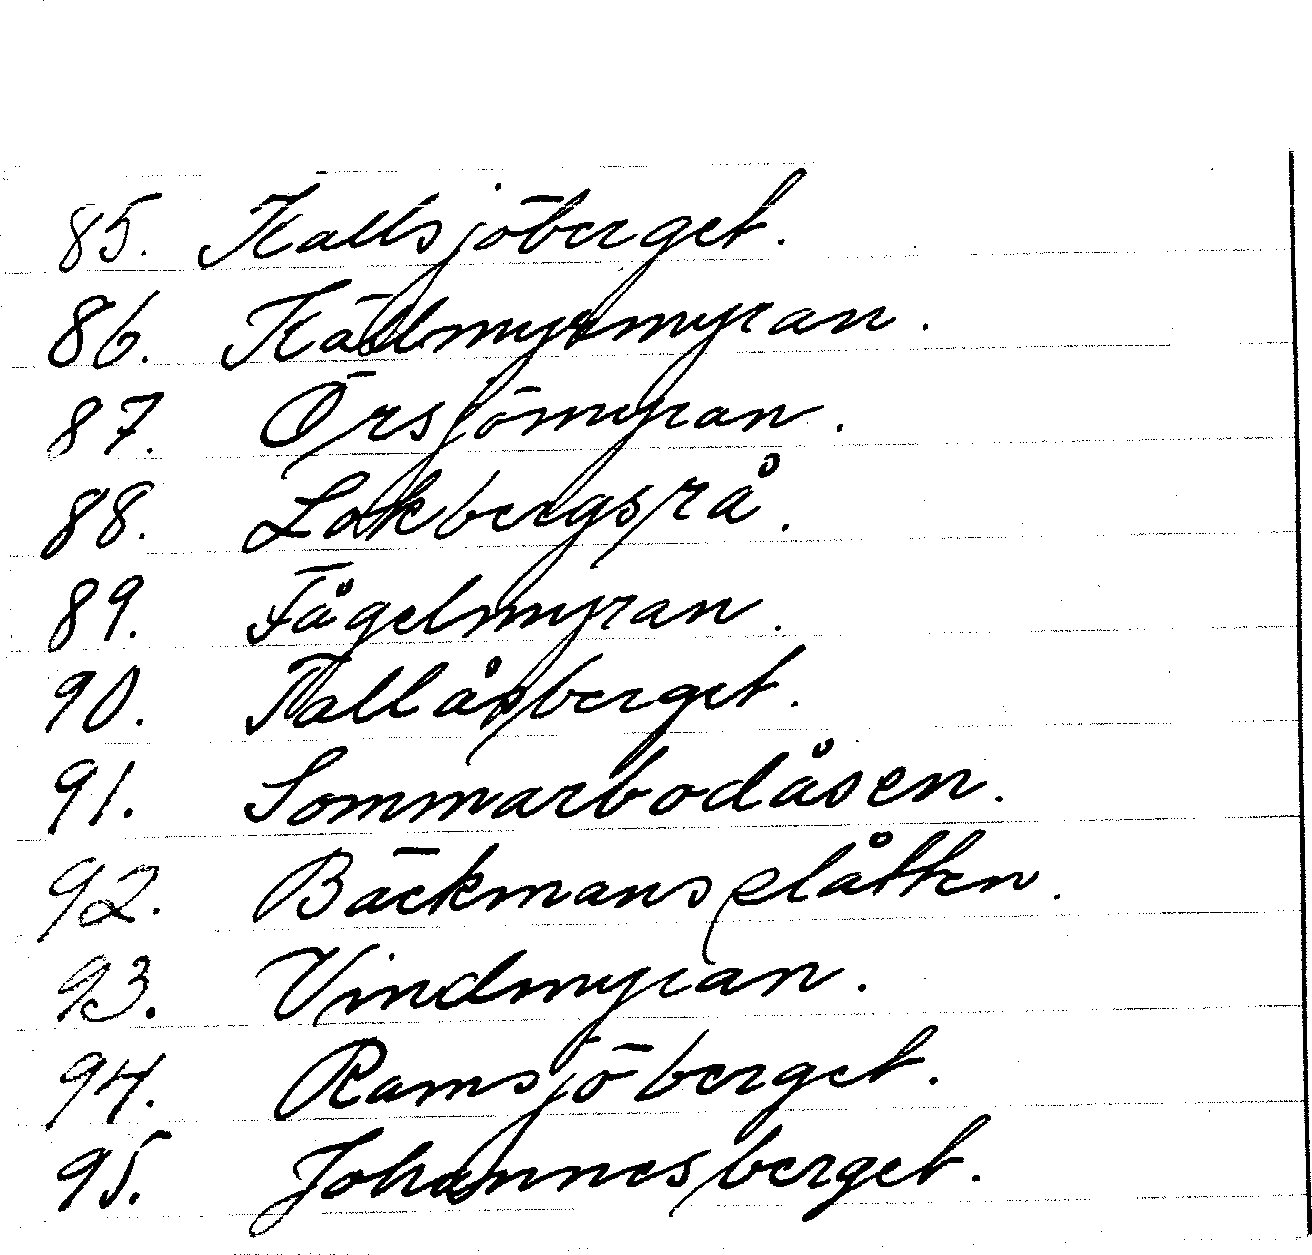 85. Kallsjöberget.
86. Källmyrmyran.
87. Örsjömyran.
88. Lokbergsrå.
89. Fågelmyran.
90. Tallåsberget.
91. Sommarbodåsen.
92. Bäckmansslåtten.
93. Vindmyran.
94. Ramsjöberget.
95. Johannesberget.